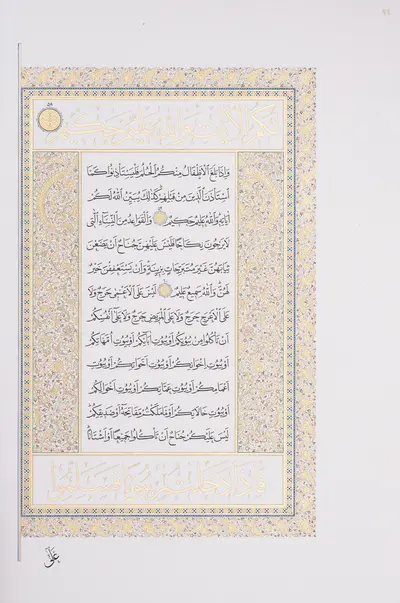 لَكُمُ الْآيَاتِ وَاللَّهُ عَلِيمٌ حَكِيمٌ
وَإِذَا بَلَغَ الْأَطْفَالُ مِنْكُمُ الْحُلُمَ فَلْيَسْتَأْذِنُوا كَمَا
اسْتَأْذَنَ الَّذِينَ مِنْ قَبْلِهِمْ كَذَٰلِكَ يُبَيِّنُ اللَّهُ لَكُمْ
آيَاتِهِ وَاللَّهُ عَلِيمٌ حَكِيمٌ وَالْقَوَاعِدُ مِنَ النِّسَاءِ الَّتِي
لَا يَرْجُونَ نِكَاحًا فَلَيْسَ عَلَيْهِنَّ جُنَاحٌ أَنْ يَضَعْنَ
ثِيَابَهُنَّ غَيْرَ مُتَبَرِّجَاتٍ بِزِينَةٍ وَأَنْ يَسْتَعْفِفْنَ خَيْرٌ
لَهُنَّ وَاللَّهُ سَمِيعٌ عَلِيمٌ لَيْسَ عَلَى الْأَعْمَىٰ حَرَجٌ وَلَا
عَلَى الْأَعْرَجِ حَرَجٌ وَلَا عَلَى الْمَرِيضِ حَرَجٌ وَلَا عَلَىٰ أَنْفُسِكُمْ
أَنْ تَأْكُلُوا مِنْ بُيُوتِكُمْ أَوْ بُيُوتِ آبَائِكُمْ أَوْ بُيُوتِ أُمَّهَاتِكُمْ
أَوْ بُيُوتِ إِخْوَانِكُمْ أَوْ بُيُوتِ أَخَوَاتِكُمْ أَوْ بُيُوتِ
أَعْمَامِكُمْ أَوْ بُيُوتِ عَمَّاتِكُمْ أَوْ بُيُوتِ أَخْوَالِكُمْ
أَوْ بُيُوتِ خَالَاتِكُمْ أَوْ مَا مَلَكْتُمْ مَفَاتِحَهُ أَوْ صَدِيقِكُمْ
لَيْسَ عَلَيْكُمْ جُنَاحٌ أَنْ تَأْكُلُوا جَمِيعًا أَوْ أَشْتَاتًا
فَإِذَا دَخَلْتُمْ بُيُوتًا فَسَلِّمُوا
عَلَىٰ